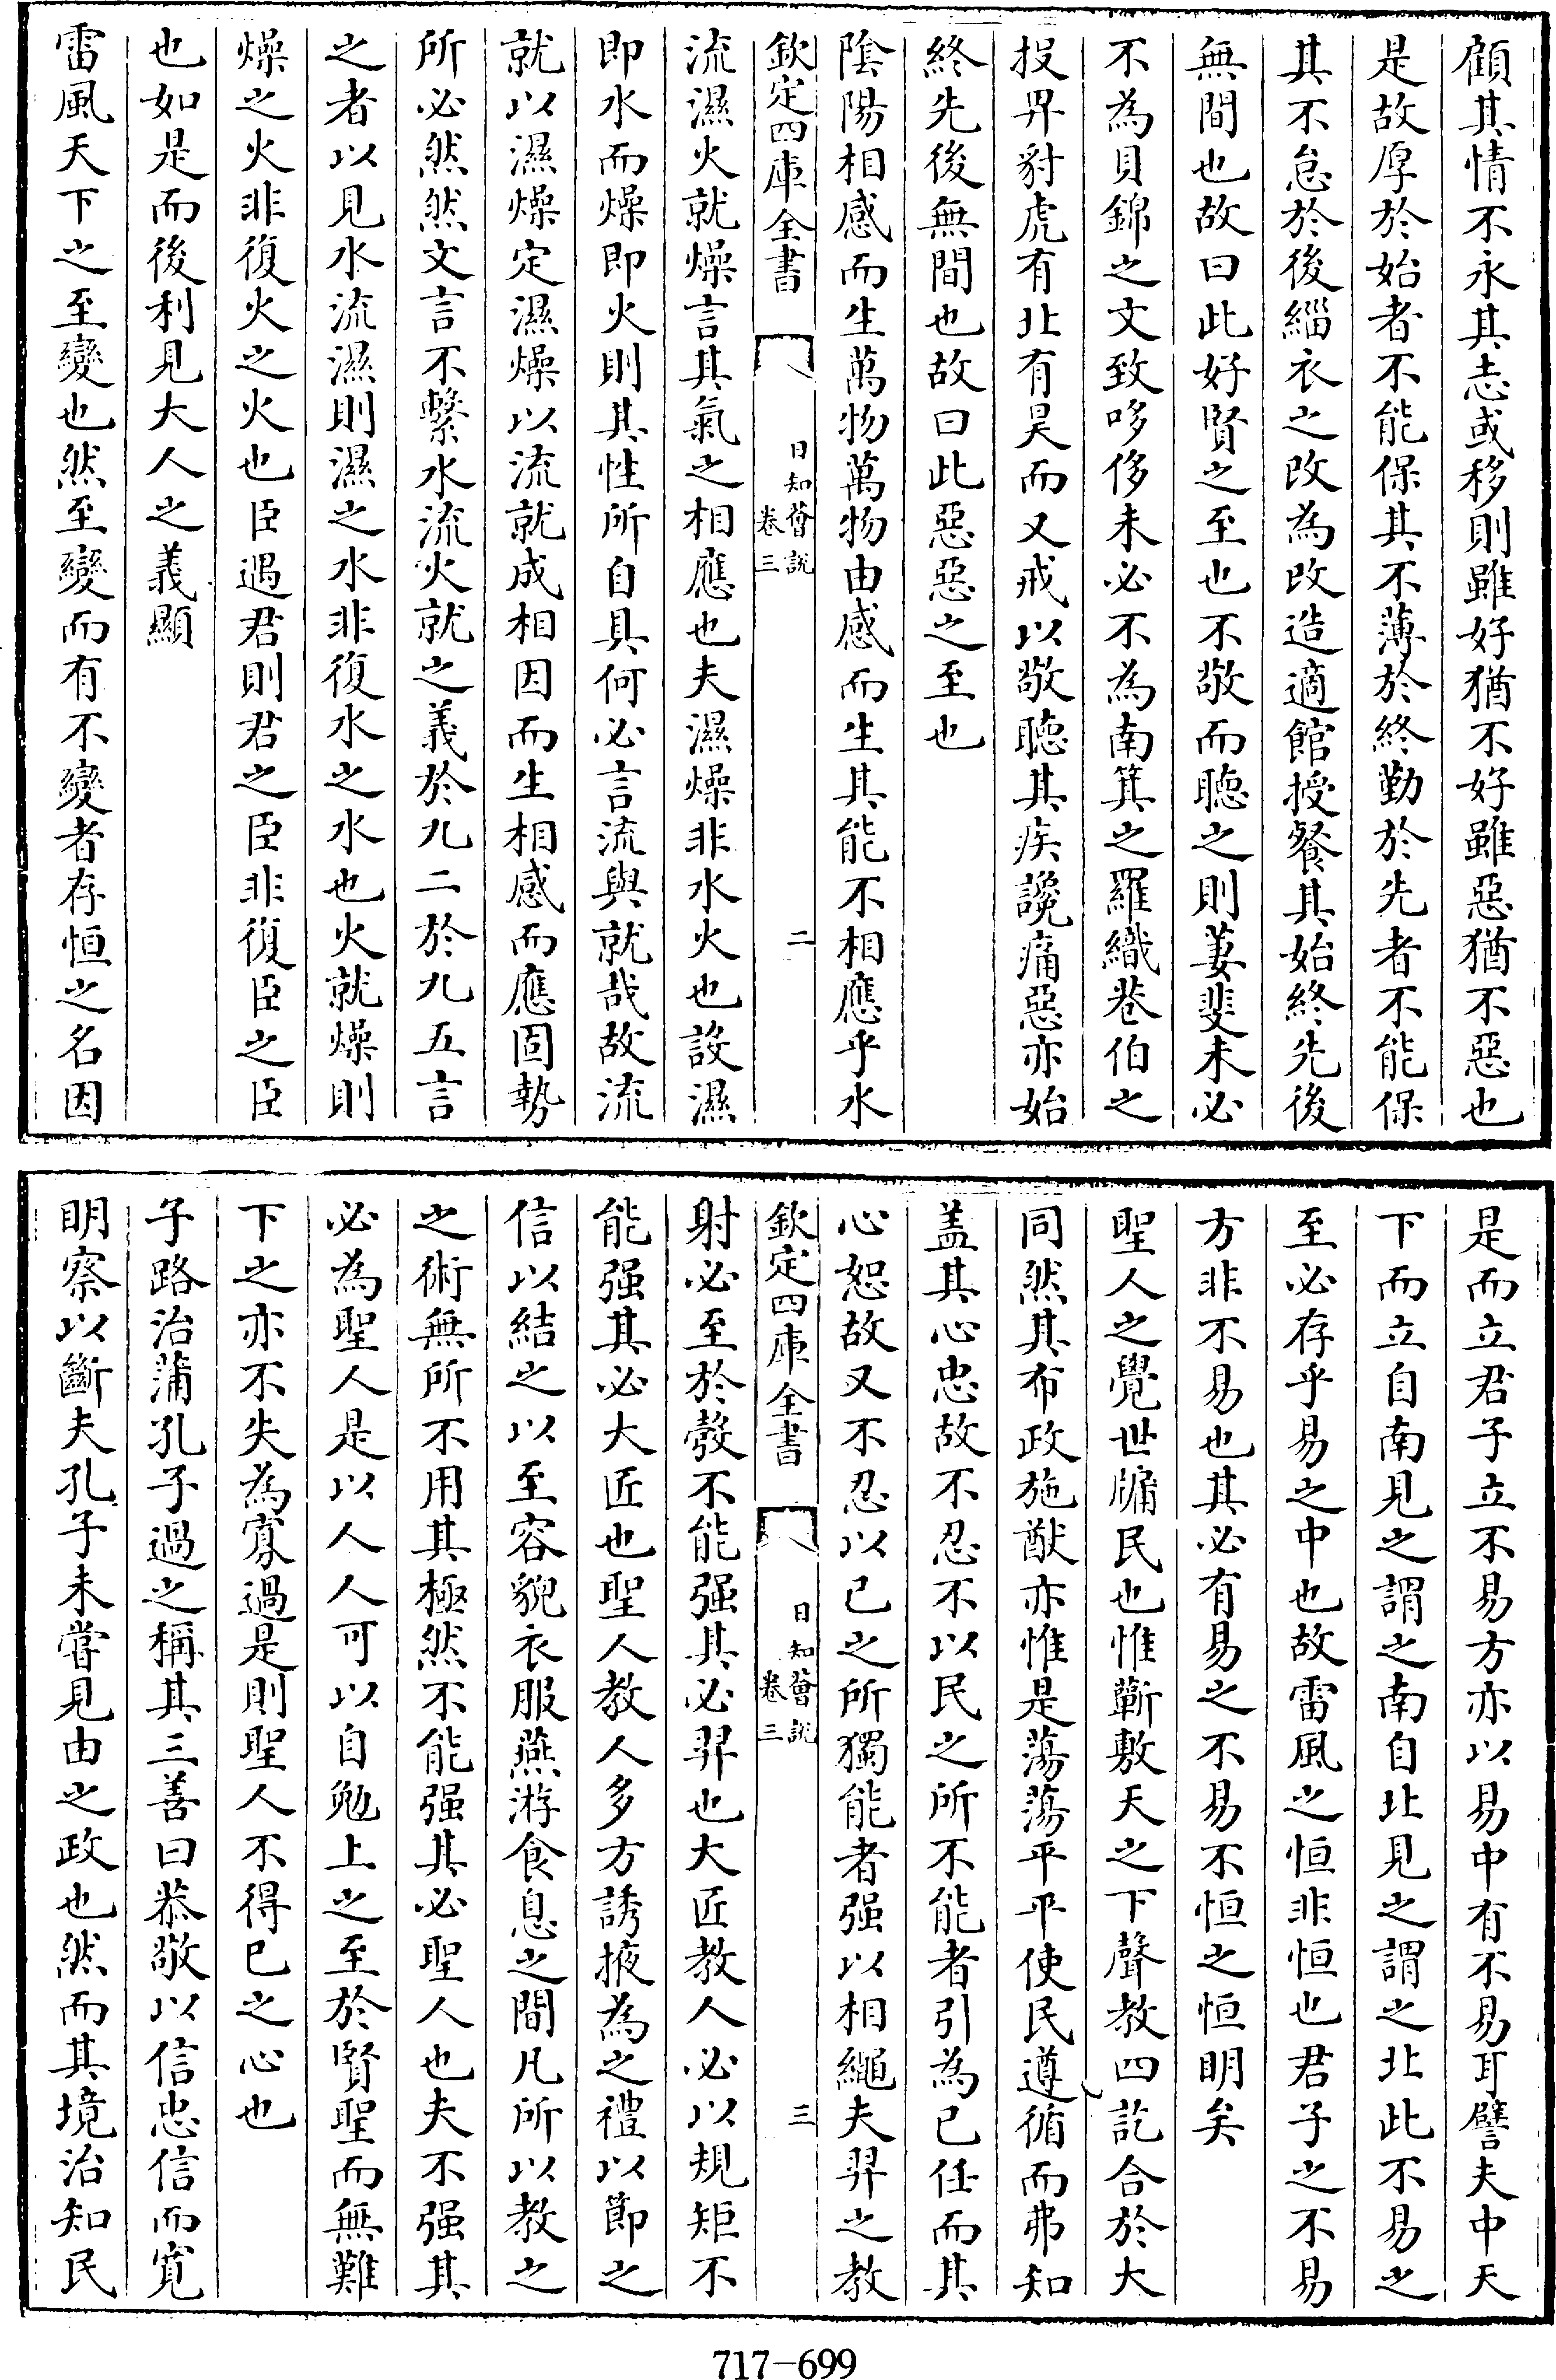 顧其情不永其志或移則雖好猶不好雖惡猶不惡也
是故厚於始者不能保其不薄於終勤於先者不能保
其不怠於後緇衣之改為改造適館授餐其始終先後
無間也故曰此好賢之至也不敬而聽之則萋斐未必
不為貝錦之文致哆侈未必不為南箕之羅織巷伯之
投畀豺虎有北有昊而又戒以敬聽其疾讒痛惡亦始
終先後無間也故曰此惡惡之至也
陰陽相感而生萬物萬物由感而生其能不相應乎水
欽定四庫全書
日知薈說
卷三
二
流濕火就燥言其氣之相應也夫濕燥非水火也設濕
即水而燥即火則其性所自具何必言流與就哉故流
就以濕燥定濕燥以流就成相因而生相感而應固勢
所必然然文言不繫水流火就之義於九二於九五言
之者以見水流濕則濕之水非復水之水也火就燥則
燥之火非復火之火也臣遇君則君之臣非復臣之臣
也如是而後利見大人之義顯
雷風天下之至變也然至變而有不變者存恒之名因
是而立君子立不易方亦以易中有不易耳譬夫中天
下而立自南見之謂之南自北見之謂之北此不易之
至必存乎易之中也故雷風之恒非恒也君子之不易
方非不易也其必有易之不易不恒之恒明矣
聖人之覺世牖民也惟蘄敷天之下聲教四訖合於大
同然其布政施猷亦惟是蕩蕩平平使民遵循而弗知
盖其心忠故不忍不以民之所不能者引為已任而其
心恕故又不忍以已之所獨能者强以相繩夫羿之教
欽定四庫全書
日知薈說
卷三
三
射必至於彀不能强其必羿也大匠教人必以規矩不
能强其必大匠也聖人教人多方誘掖為之禮以節之
信以結之以至容貌衣服燕游食息之間凡所以教之
之術無所不用其極然不能强其必聖人也夫不强其
必為聖人是以人人可以自勉上之至於賢聖而無難
下之亦不失為寡過是則聖人不得已之心也
子路治蒲孔子過之稱其三善曰恭敬以信忠信而寬
明察以斷夫孔子未嘗見由之政也然而其境治知民
717-699